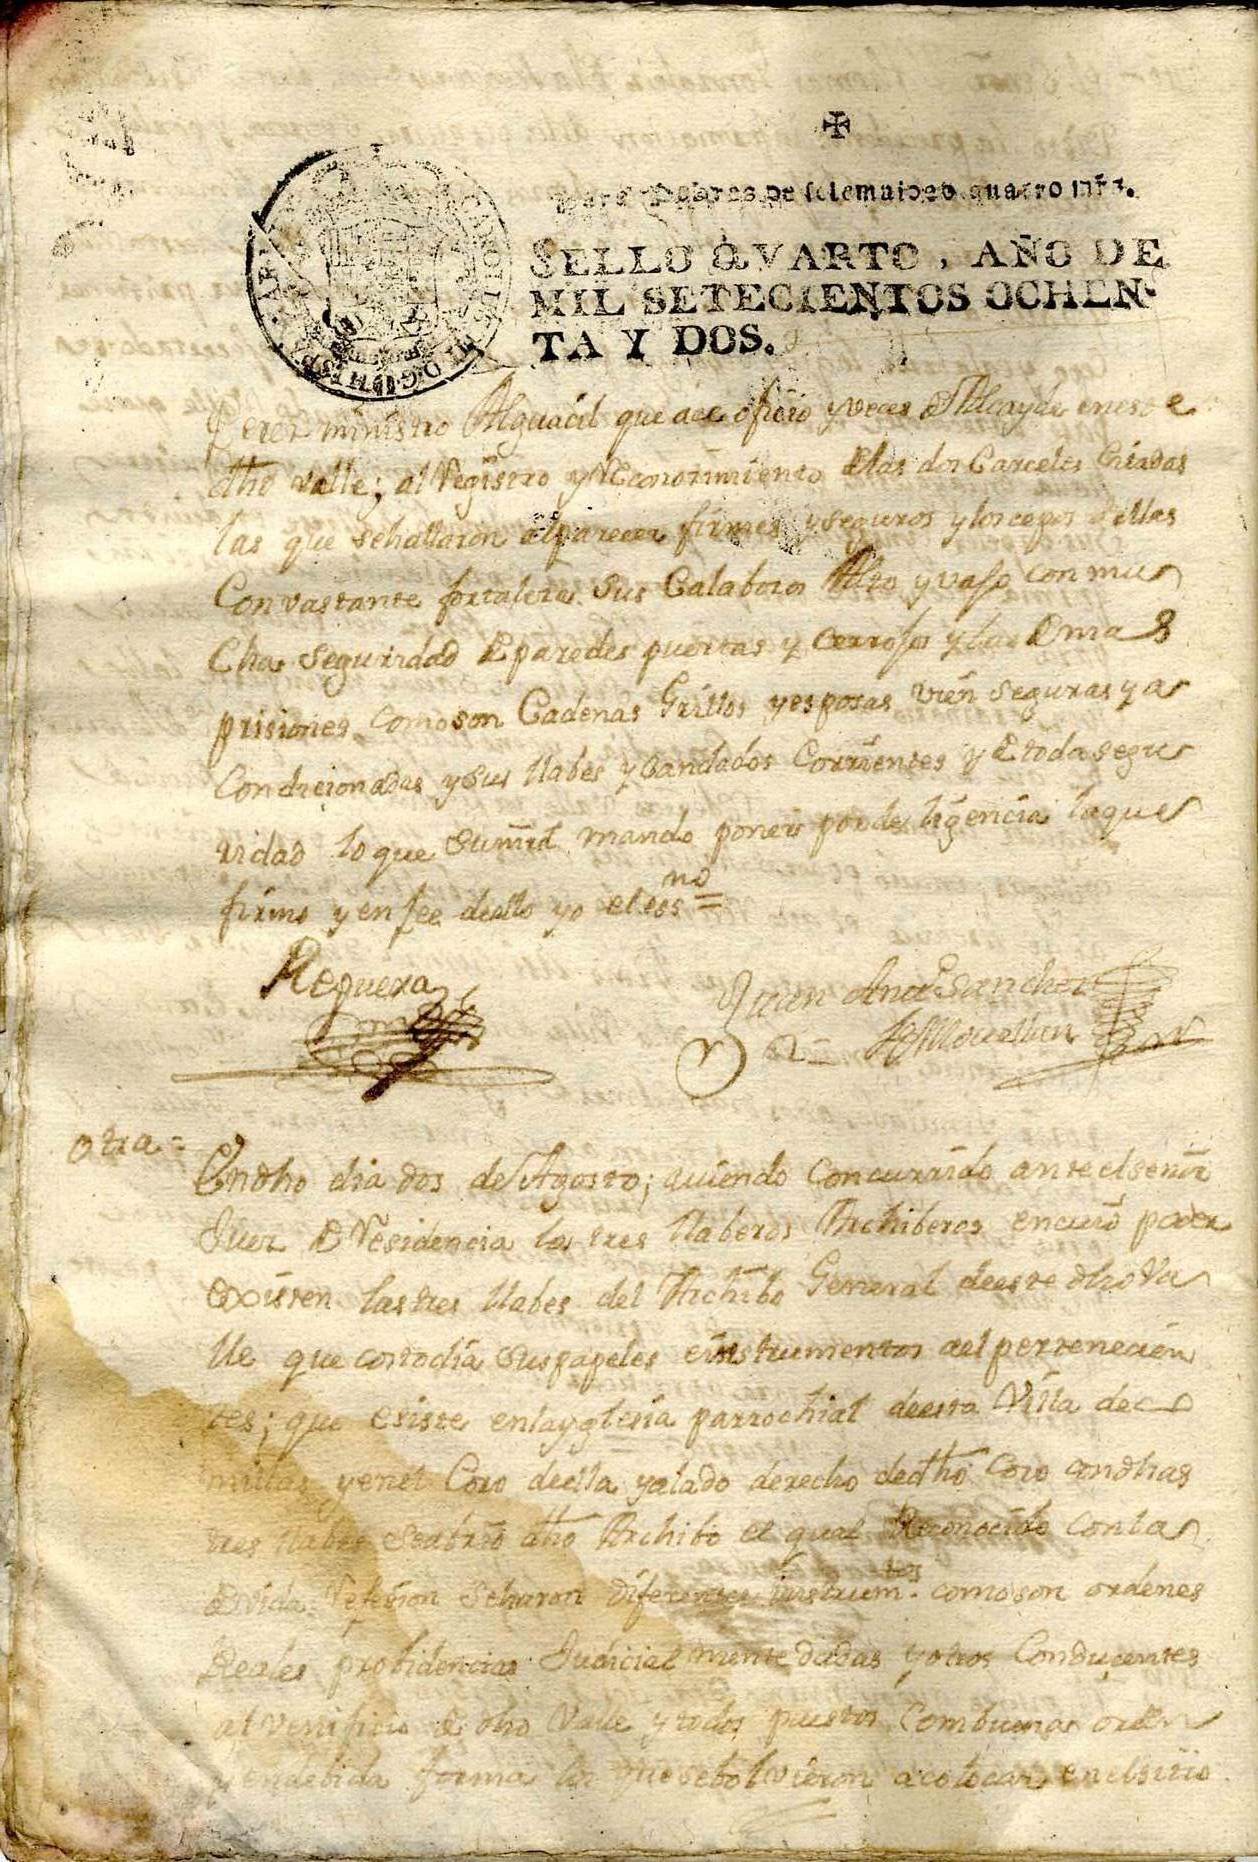 ✠
Para Pobres de solemnidad quatro mrs.
SELLO QVARTO, AÑO DE
MIL SETECIENTOS OCHEN-
TA Y DOS.
ministro Alguacil que ace oficio y veces d Alcayde en este
dho valle; al Registro y Reconozimiento de las dos Carceles Citadas
las que se hallaron al parecer firmes y seguros y los cepos dellas
Con vastante fortaleza sus Calabozos Alto y vaxo con mu
cha seguridad de paredes puertas y cerrojos y las demas
prisiones como son Cadenas Grillos y esposas vien seguras y a
condicionadas y sus llabes y Candados Corrientes y de toda segu
ridad lo que sumrd mando poner por deligencia la que
firmo y en fee dello yo el essno =
Reguera
Juan Sanchez
Otra =
En dho dia dos de Agosto; aviendo concurrido ante el señor
Juez de Residencia los tres llaberos Archiberos en cuio poder
existen las tres llabes del Archibo General de este dho Va
lle que costodia sus papeles e instrumentos a el pertenecien
tes; que existe en la yglesia parrochial de esta Villa de
millas y en el Coro de ella y a lado derecho de dho Coro con dhas
tres llabes se abrio dho Archibo el qual Reconocido con la
devida se diferentes instrumtos como son ordenes
Reales probidencias Judicialmente dadas y otros Conducentes
al venificio de dho Valle y todos puestos con buena orden
y en debida forma los que se bolvieron a colocar en el sitio